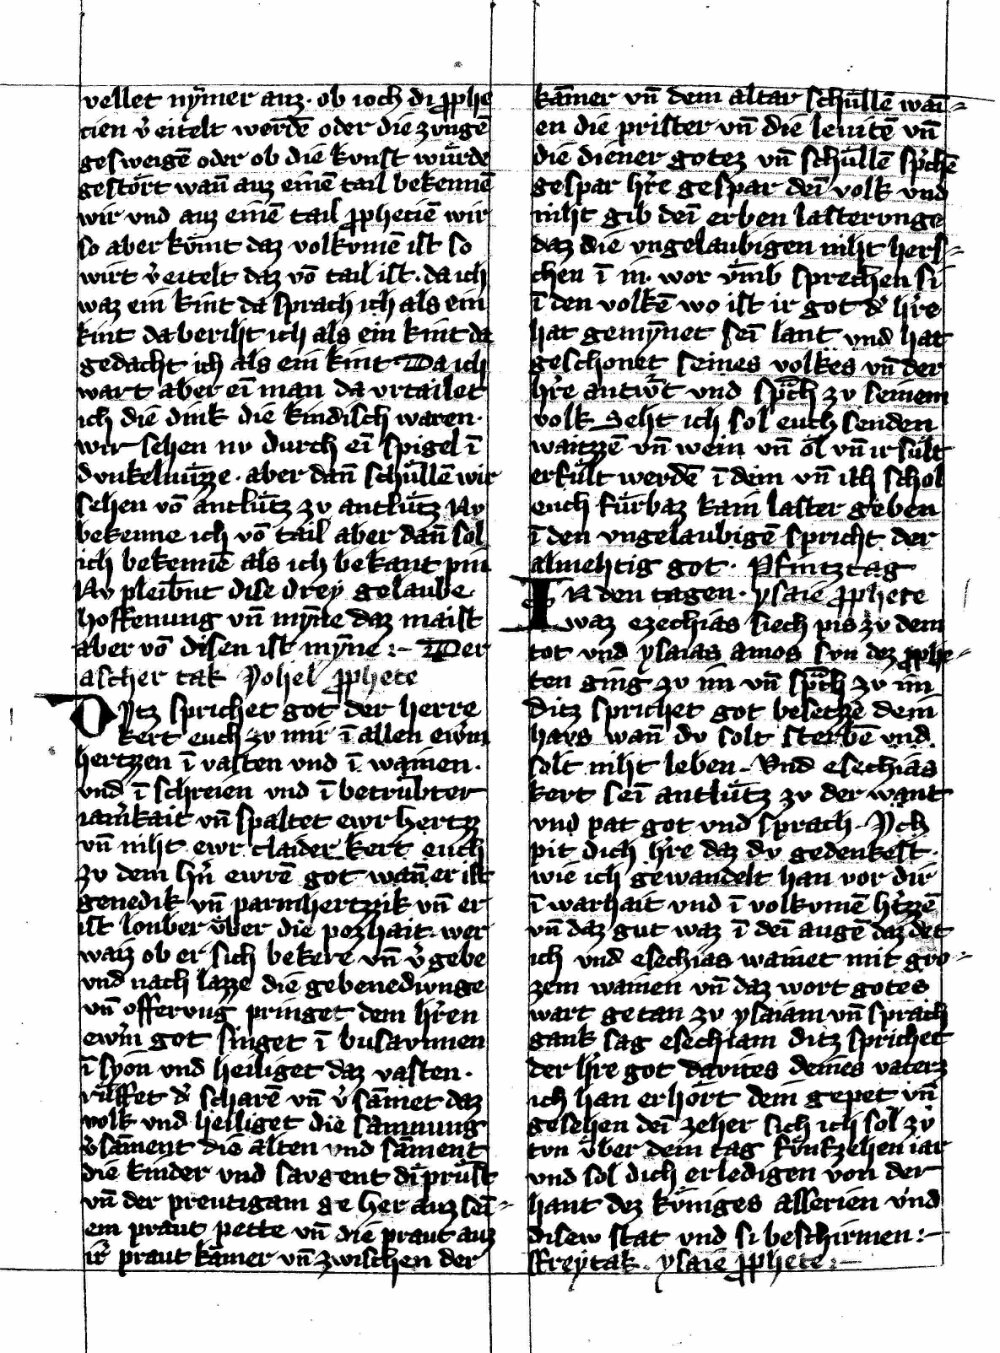 vellet nẏmer auz · ob ioch di ꝓphe
cien v̾ eitelt werdē oder die zvngē
gesweigē oder ob die kvnst wůrde
gestört wan̄ auz einē tail bekennē
wir vnd auz einē tail ꝓphecien̄ wir
so aber kůmt daz volkvmen ist so
wirt v̾ eitelt daz vō tail ist · da ich
waz ein kint da sprach ich als ein
kint da beriht ich als ein kint da
gedacht ich als ein kint Da ich
wart aber eī man da vrtailet
ich die dink die kindisch waren ·
wir sehen nv durch eī spigel ī
dvnkelnůzze · aber dan̄ schůllē wir
sehen vō antlůtz zv antlůtz Nv
bekenne ich vō tail aber dan̄ sol
ich bekennē als ich bekant pin
Nv pleibn̄t dise drey gelaube
hoffenung vn̄ mẏne daz maist
aber vō disen ist mẏne :~ Der
ascher tak Johel ꝓphete
Ditz sprichet got der herre
kert euch zv mir ī allen ewrm
hertzen ī vasten vnd ī wainen ·
vnd ī schreien vnd ī betrubter
iam̾kait vn̄ spaltet ewr hertz
vn̄ niht ewr claider kert euch
zv dem hr̄n ewrē got wan̄ er ist
genedik vn̄ parmhertzzik vn̄ er
ist louber v̊ber die pozhait · wer
waiz ob er sich bekere vn̄ v̾gebe
vnd nach lazze die gebenedivnge
vn̄ offerung pringet dem hr̄en
ewrm got singet ī busavnnen
ī syon vnd heiliget daz vasten ·
růffet d̾ scharē vn̄ v̾ sāmet daz
volk vnd heiliget die samnung
v̾ sāment die alten vnd sāment
die kinder vnd saugent di průst
vn̄ der preutigam ge her auz sei=
em praut pette vn̄ die praut auz
ir̾ praut kāmer vn̄ zwischen der
kāmer vn̄ dem altar schůllē wai=
en die prister vn̄ die leuitē vn̄
die diener gotez vn̄ schůllē sp̾chē
gespar hr̄e gespar deī volk vnd
niht gib deī erben lastervnge
daz die vngelaubigen niht hers=
chen ī in · wor v̊mb sprechen si
ī den volkē wo ist ir got d̾ hr̄e
hat gemẏnet seī lant vnd hat
geschonet seines volkes vn̄ der
hr̄e antw̾t vnd sp̄ch zv seinem
volk Seht ich sol euch senden
waitzzē vn̄ wein vn̄ ől vn̄ ir sůlt
erfůlt werdē ī dem vn̄ ich schol
euch fůrbaz kain laster geben
ī den vngelaubigē spricht der
almehtig got · Pfintztag
IN den tagen · ysaie ꝓphete
waz ezechias siech pis zv dem
tot vnd ysaias amos svn dez ꝓphe=
ten ging zv im vn̄ sp̄ch zv im
Ditz sprichet got besetzze dein
havs wan̄ dv solt sterbē vnd
solt niht leben · Vnd esechias
kert seī antlůtz zv der want
vnd pat got vnd sprach · Jch
pit dich hr̄e daz dv gedenkest ·
wie ich gewandelt han vor dir
ī warhait vnd ī volkvmē h̾tzzē
vn̄ daz gut waz ī deī augē daz det
ich vnd esechias wainet mit gro=
zem wainen vn̄ daz wort gotes
wart getan zv ysaiam vn̄ sprach
gank sag esechiam ditz sprichet
der hr̄e got davites deines vaterz
ich han erhört dein gepet vn̄
gesehen deī zeher sich ich sol zv̊
tvn v̊ber dein tag fůnfzehen iar
vnd sol dich erledigen von der
hant dez kůniges asserien vnd
disew stat vnd si beschirmen :~
Freytak · ysaie ꝓphete :~